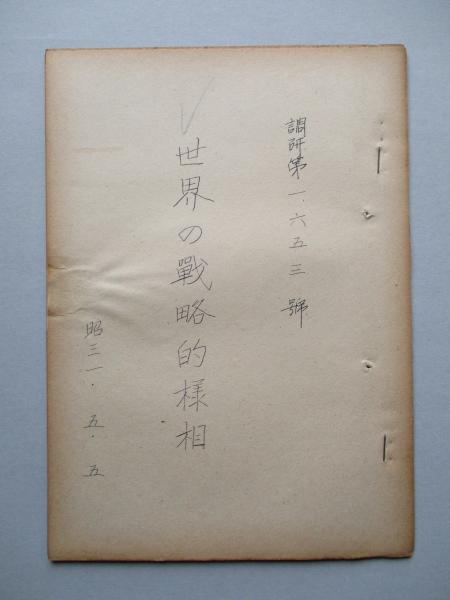 調研第一、六五三號
世界の戰略的様相
昭三一.五.五